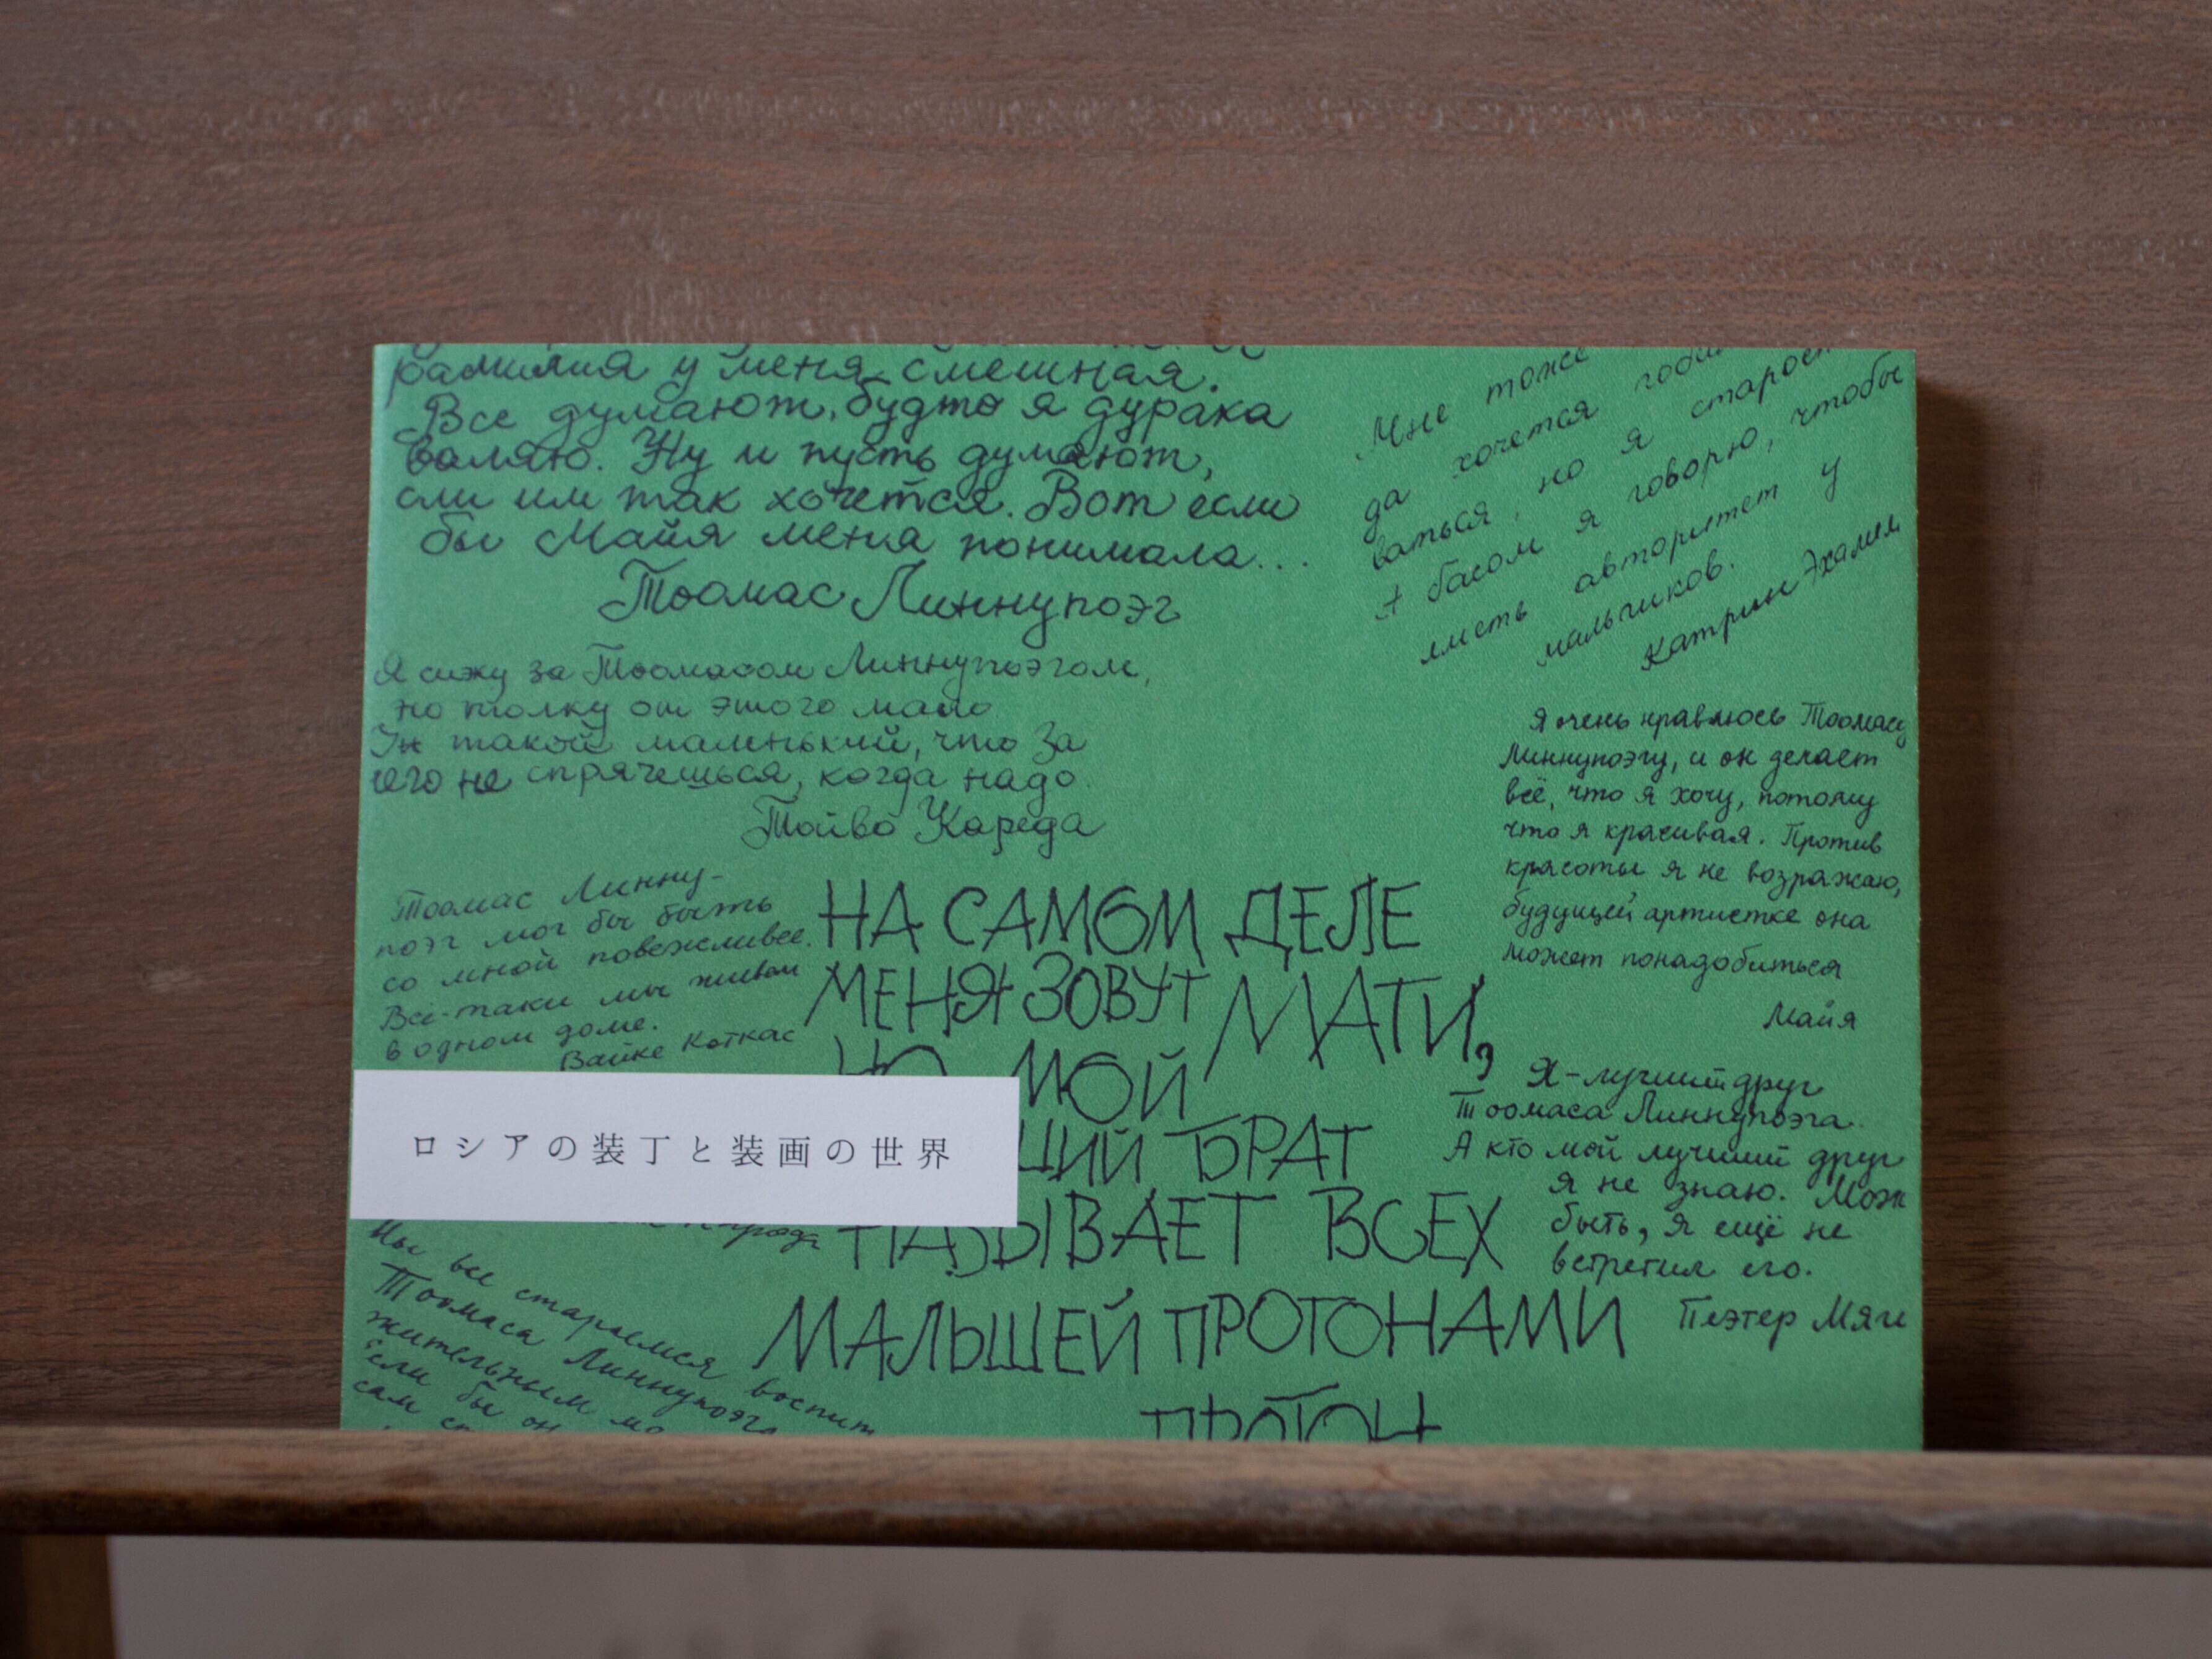 фамилия у меня смешная.
Все думают, будто я дурака
валяю. Ну и пусть думают,
сли им так хочется. Вот если
бы Майя меня понимала...
Тоомас Линнупоэг
Я сижу за Тоомасом Линнупоэгом,
но толку от этого мало
Он такой маленький, что за
него не спрячешься, когда надо.
Тойво Кареда
Тоомас Линну-
поэг мог бы быть
со мной повежливее.
Всё-таки мы живём
в одном доме.
Вайке Коткас
ロシアの装丁と装画の世界
Мы все стараемся воспит
Тоомаса Линнупоэга
жительным
Если бы он
сам
НА САМОМ ДЕЛЕ
МЕНЯ ЗОВУТ МАТИ,
НО МОЙ
ШИЙ БРАТ
НАЗЫВАЕТ ВСЕХ
МАЛЫШЕЙ ПРОТОНАМИ
ПРОТОН
Мне тоже
да хочется
ваться, но я старост
А басом я говорю, чтобы
иметь авторитет у
мальчиков.
Катрин Эхамм
Я очень нравлюсь Тоомасу
Линнупоэгу, и он делает
всё, что я хочу, потому
что я красивая. Против
красоты я не возражаю,
будущей артистке она
может понадобиться
Майя
Я - лучший друг
Тоомаса Линнупоэга.
А кто мой лучший друг
я не знаю. Мож
быть, я ещё не
встретил его.
Пеэтер Мяги